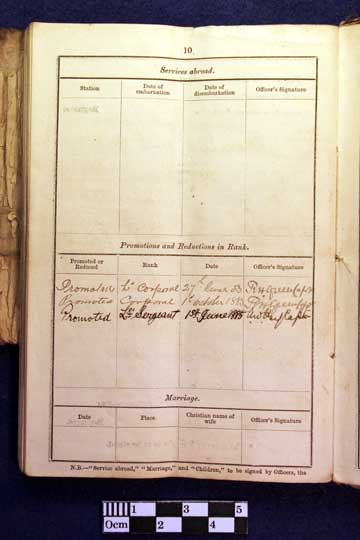 10.
Services abroad.
Station Date of embarkation Date of disembarkation Officer's Signature
Promotions and Reductions in Rank.
Promoted or Reduced Rank Date Officer's Signature
Promoted Lce Corporal 27th June 83
Promoted Corporal 1st October 1883
Promoted Lce Sergeant 1st June 1885 Capt
Marriage.
Date Place. Christian name of wife Officer's Signature
N.B.—"Service abroad," "Marriage," and "Children," to be signed by Officers, the
0cm 1 2 3 4 5